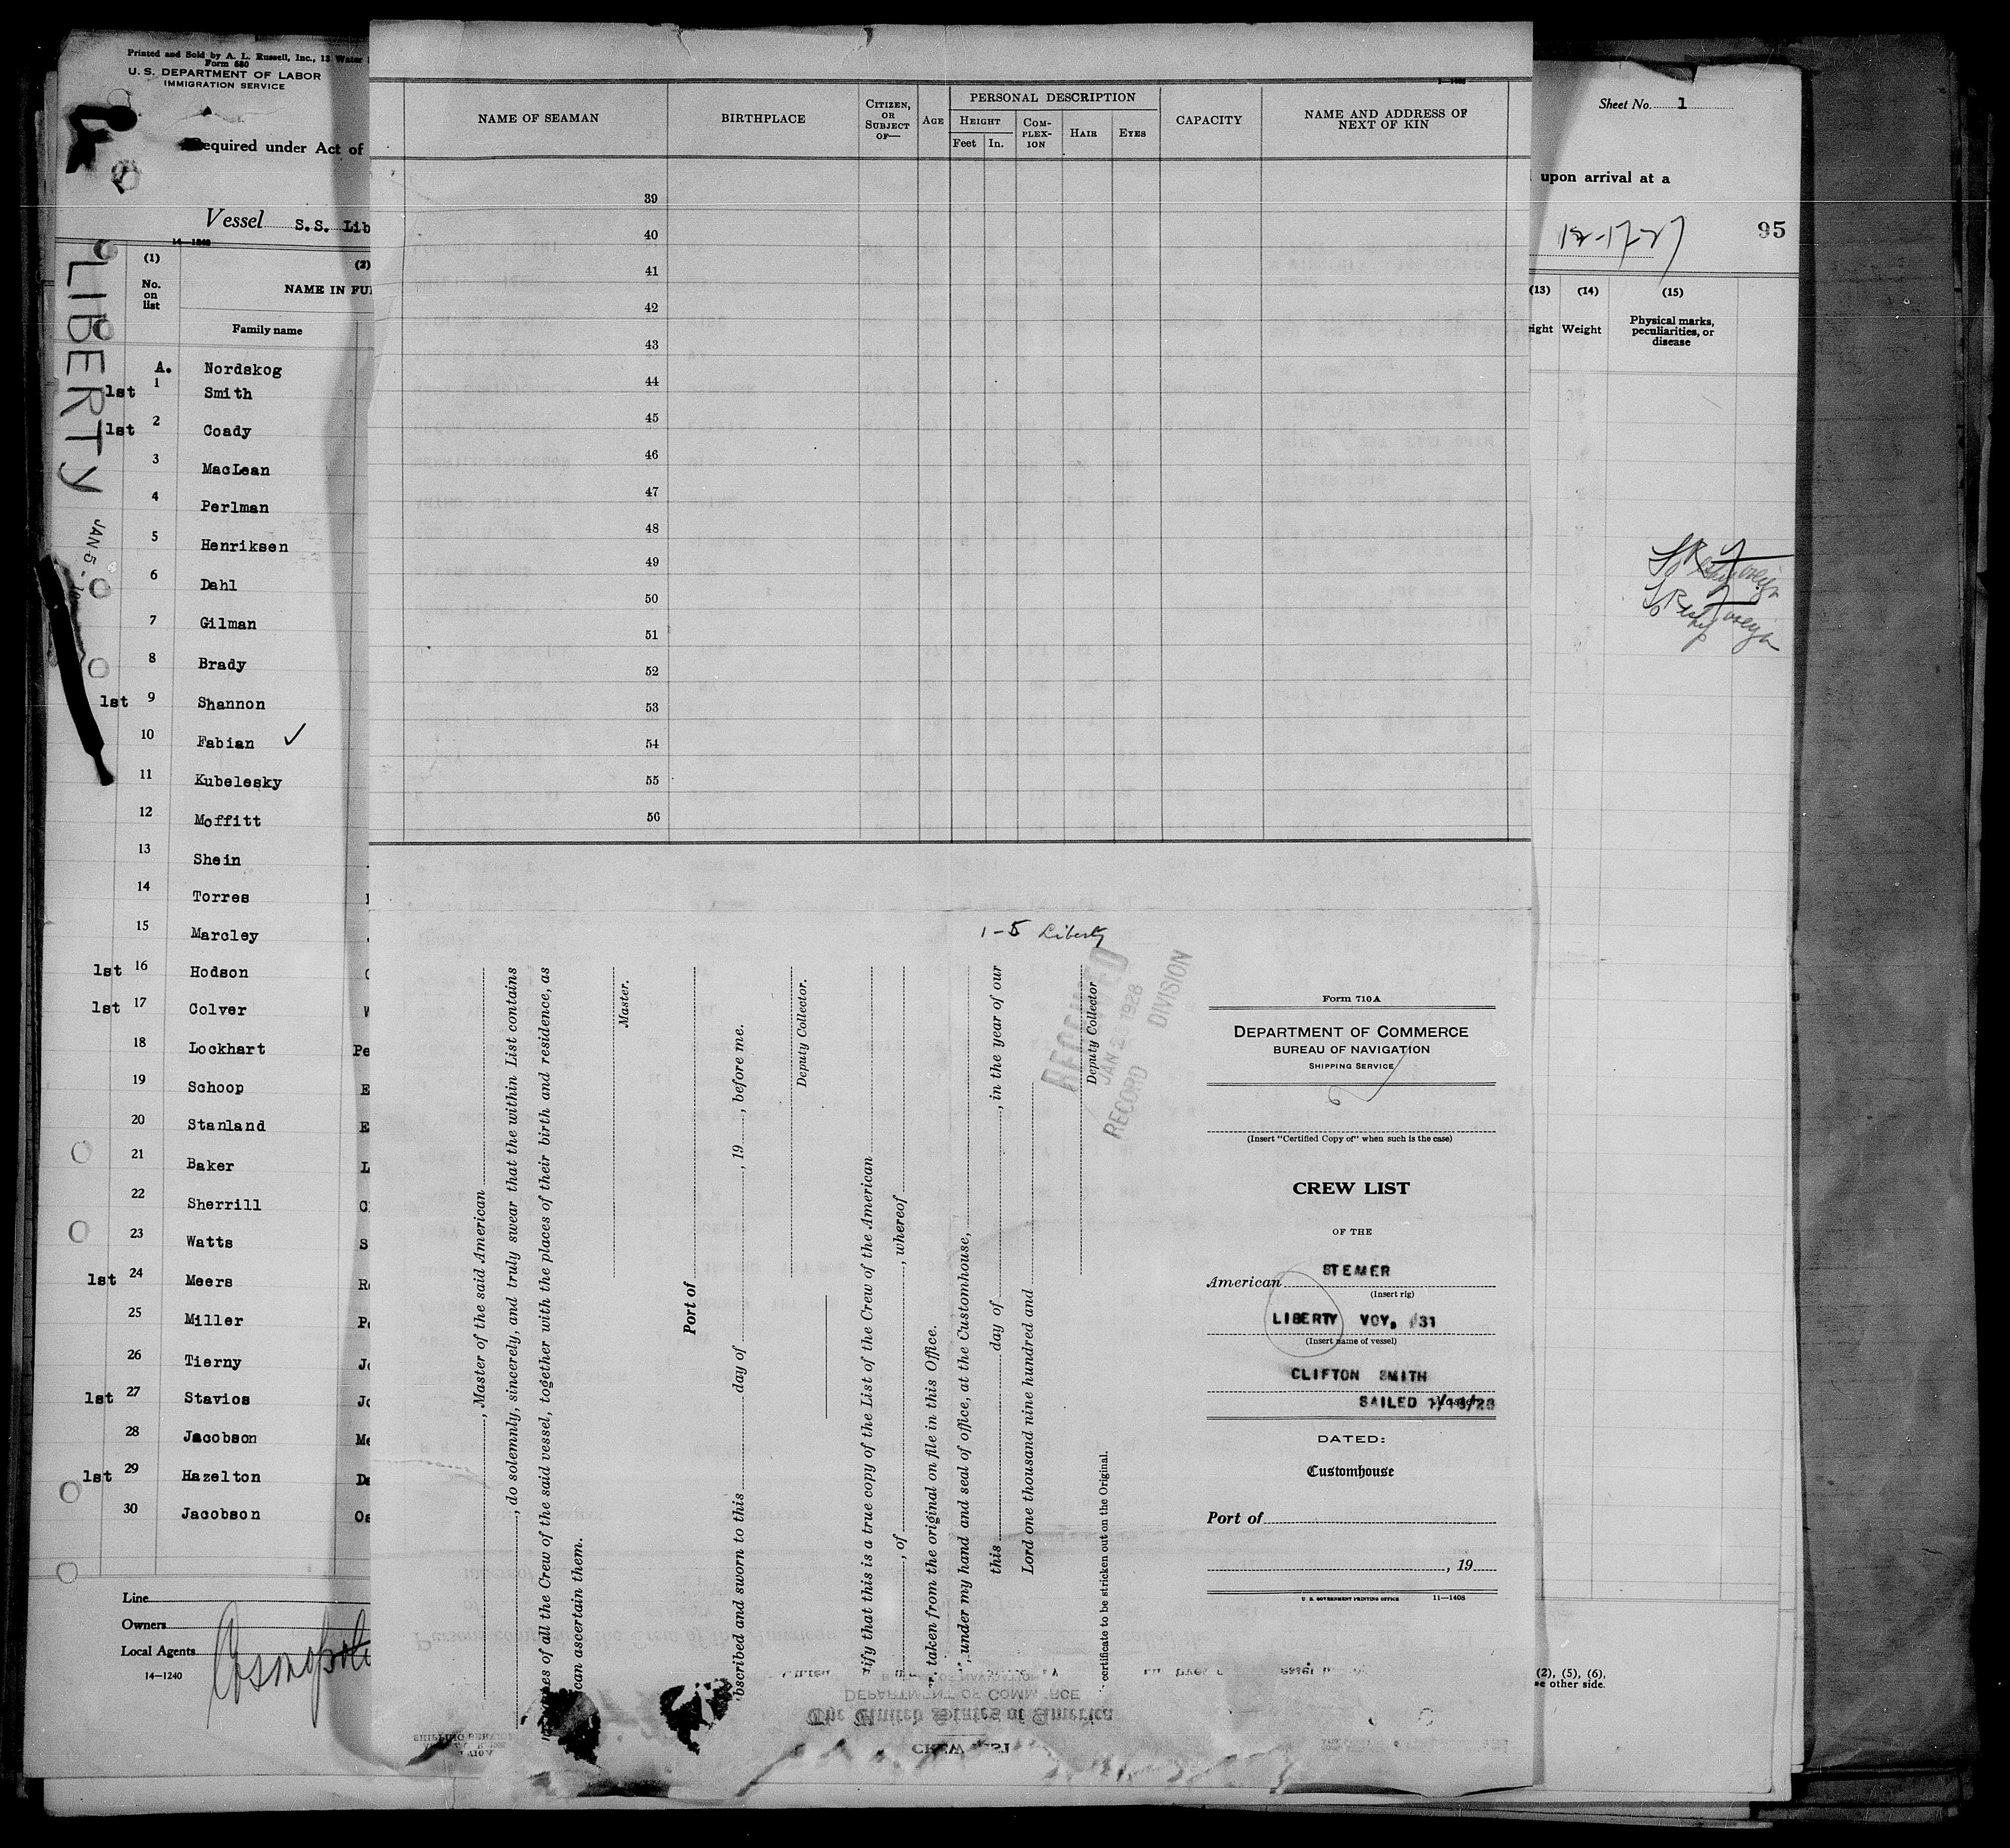 Printed and Sold by A. L. Russell, Inc., 13 Water
Form 680
U. S. DEPARTMENT OF LABOR
IMMIGRATION SERVICE
Required under Act of
Vessel S.S. Lib
14—1240
LIBERTY
JAN 5
(1)
No.
on
list
(2)
NAME IN FUL
Family name
A. Nordskog
1st 1 Smith
1st 2 Coady
3 MacLean
4 Perlman
5 Henriksen
6 Dahl
7 Gilman
8 Brady
1st 9 Shannon
10 Fabian ✓
11 Kubelesky
12 Moffitt
13 Shein
14 Torres
15 Marcley
1st 16 Hodson
1st 17 Colver W
18 Lockhart Pe
19 Schoop E
20 Stanland E
21 Baker L
22 Sherrill C
23 Watts S
1st 24 Meers Ro
25 Miller Pe
26 Tierny Jo
1st 27 Stavios Jo
28 Jacobson Me
1st 29 Hazelton Da
30 Jacobson Os
Line
Owners
Local Agents
Cosmopoli
14—1240
NAME OF SEAMAN
BIRTHPLACE
CITIZEN,
OR
SUBJECT
OF—
AGE
PERSONAL DESCRIPTION
HEIGHT
Feet In.
COM-
PLEX-
ION
HAIR
EYES
CAPACITY
NAME AND ADDRESS OF
NEXT OF KIN
39
40
41
42
43
44
45
46
47
48
49
50
51
52
53
54
55
56
1-5 Liberty
RECEIVED
JAN 2 1928
RECORD DIVISION
, Master of the said American
, do solemnly, sincerely, and truly swear that the within List contains
names of all the Crew of the said vessel, together with the places of their birth and residence, as
can ascertain them.
Master.
Port of
bscribed and sworn to this day of , 19 , before me.
Deputy Collector.
ify that this is a true copy of the List of the Crew of the American
, of , whereof
, taken from the original on file in this Office.
, under my hand and seal of office, at the Customhouse,
this day of , in the year of our
Lord one thousand nine hundred and
Deputy Collector
certificate to be stricken out on the Original.
Form 710A
DEPARTMENT OF COMMERCE
BUREAU OF NAVIGATION
SHIPPING SERVICE
(Insert "Certified Copy of" when such is the case)
CREW LIST
OF THE
American STEMER
(Insert rig)
LIBERTY VOY, #31
(Insert name of vessel)
CLIFTON SMITH
SAILED 1/14/28
DATED:
Customhouse
Port of
, 19
U. S. GOVERNMENT PRINTING OFFICE 11—1408
The United States of America
DEPARTMENT OF COMMERCE
CREW LIST
Sheet No. 1
upon arrival at a
12-17-27
95
(13) (14) (15)
ight Weight
Physical marks,
peculiarities, or
disease
To Reship foreign
To Reship foreign
(2), (5), (6),
e other side.